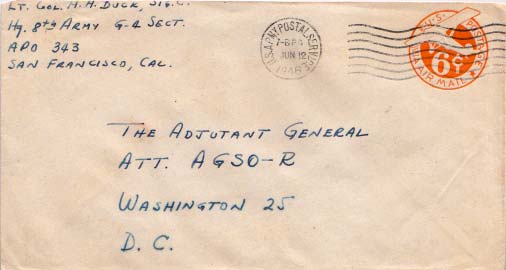 LT. COL. H. H. DUCK, SIG. C.
HQ. 8TH ARMY G-4 SECT.
APO 343
SAN FRANCISCO, CAL.
U.S. ARMY POSTAL SERVICE
JUN 12
1946
U.S. POSTAGE
6¢
VIA AIR MAIL
THE ADJUTANT GENERAL
ATT. AGSO-R
WASHINGTON 25
D. C.